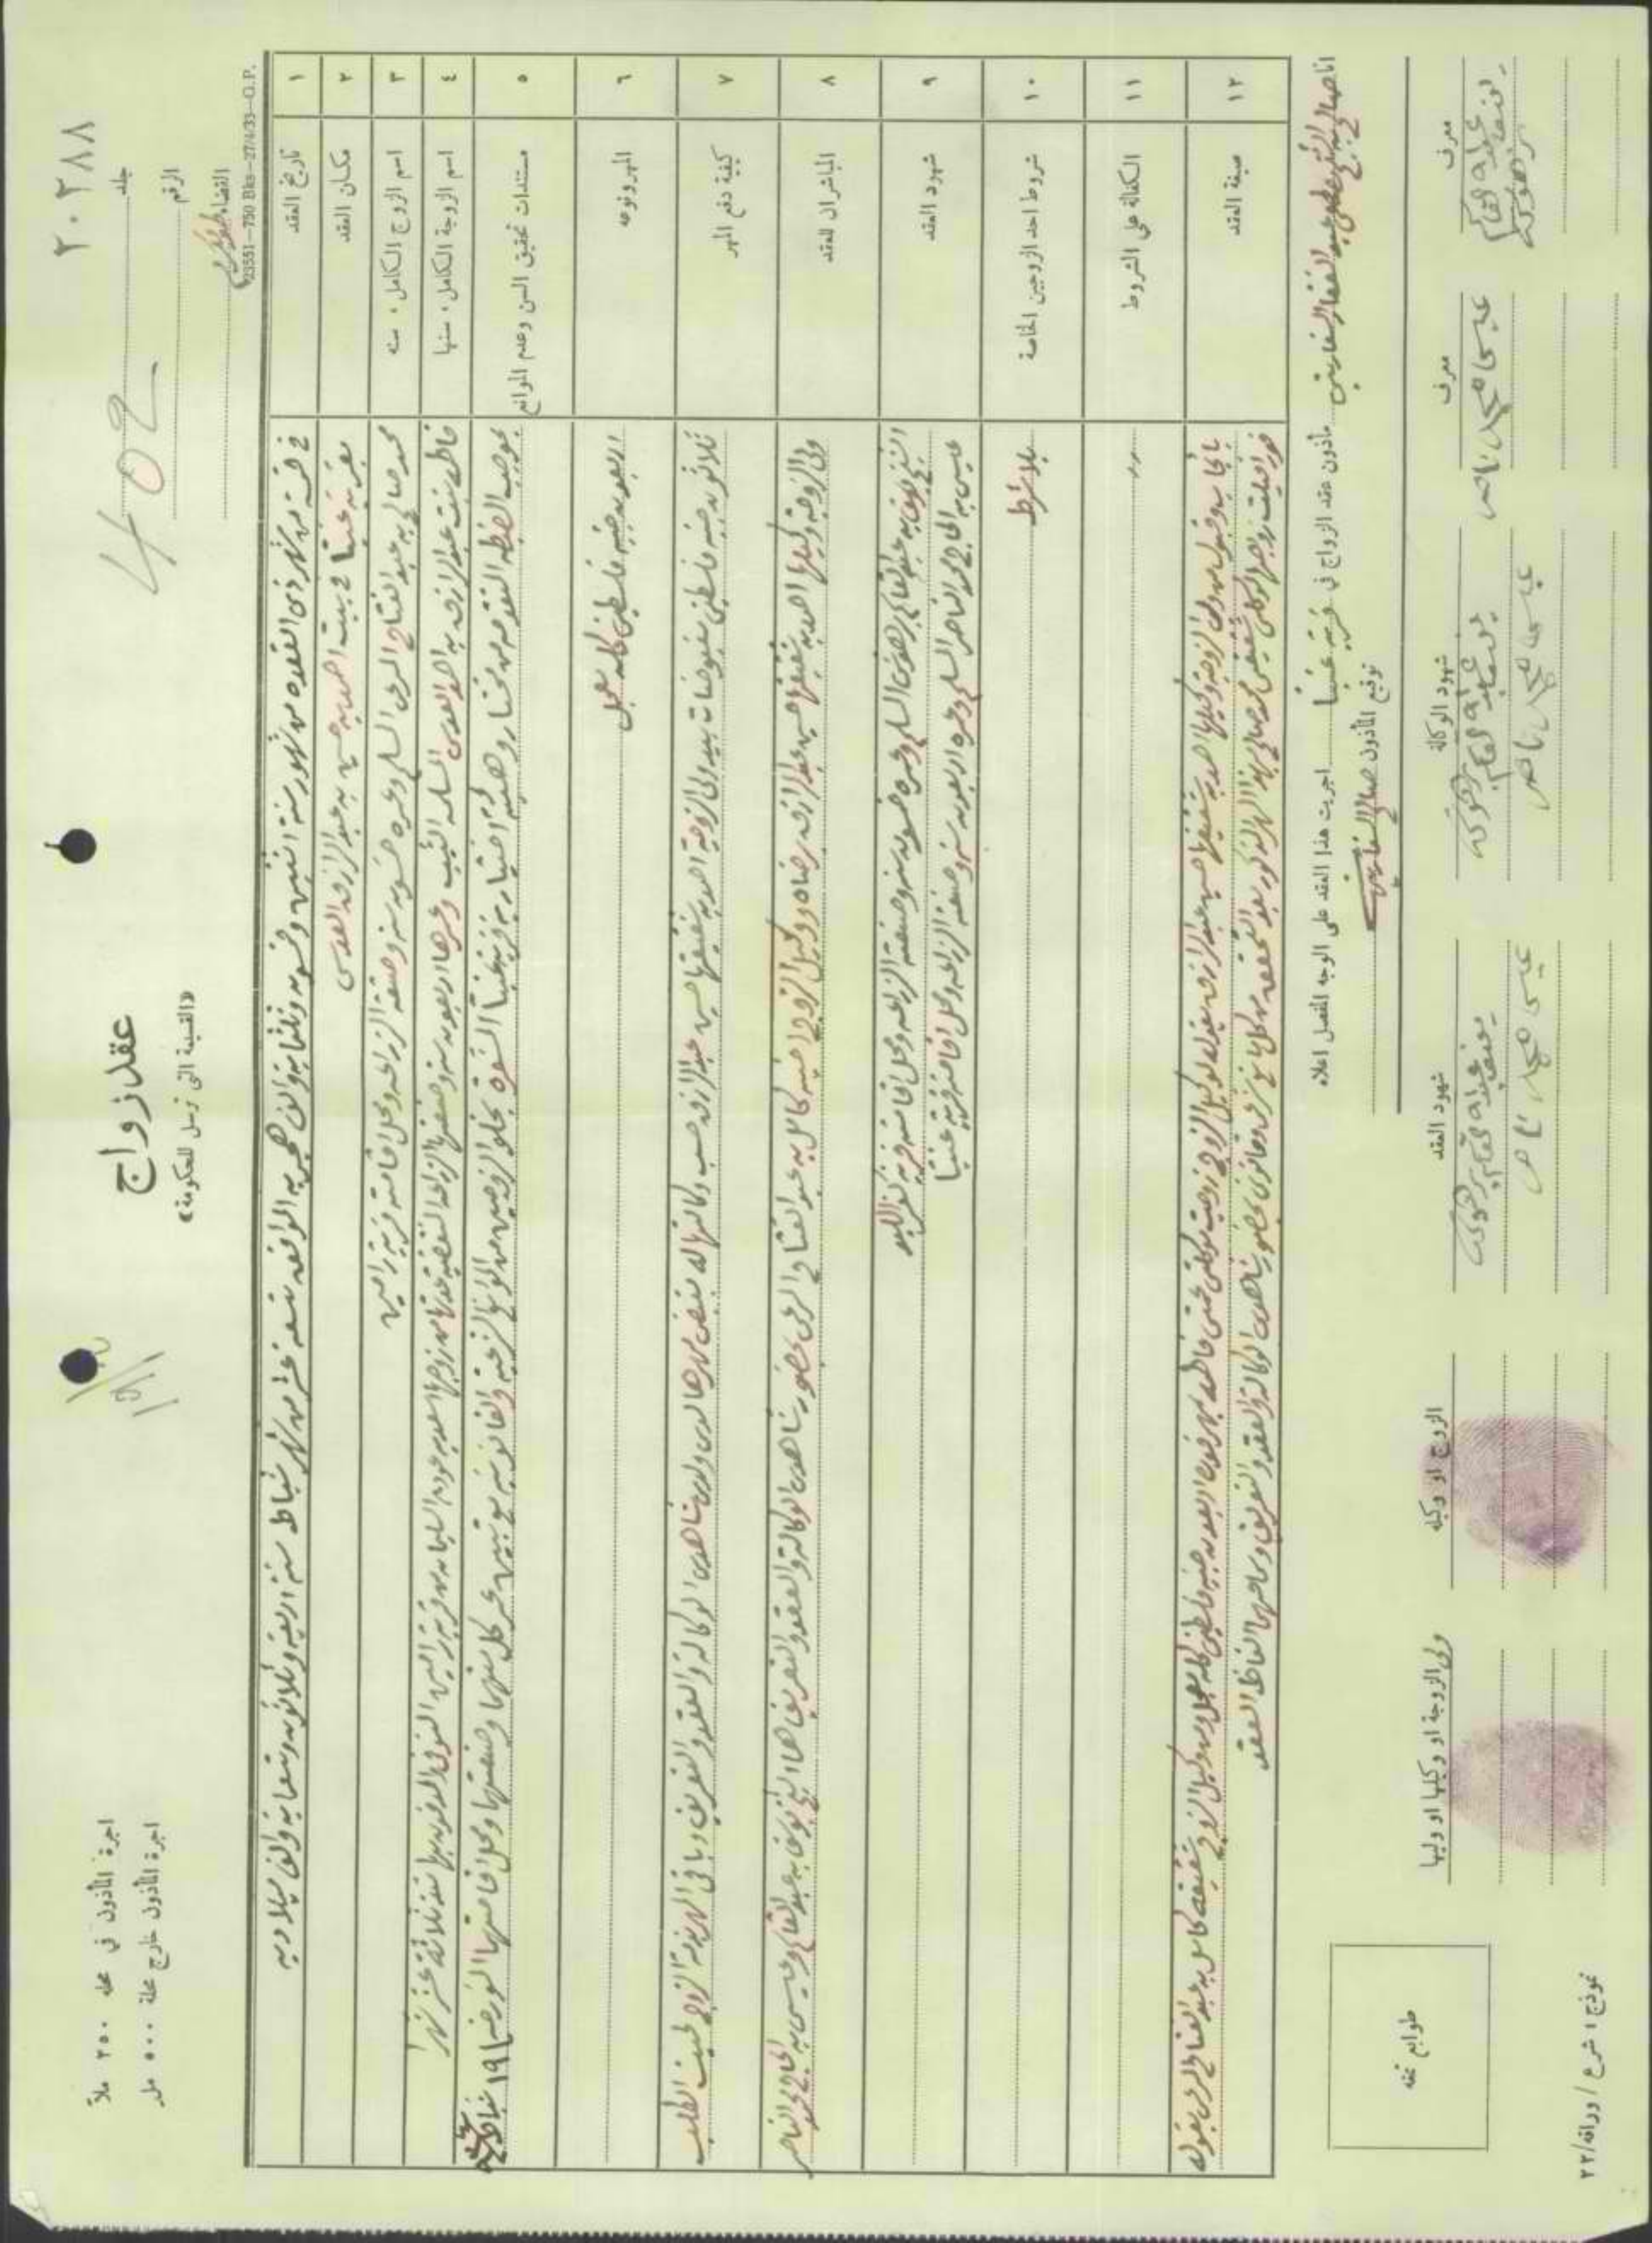 ٢٠٢٨٨
402
جلد
الرقم
القضاء طولكرم
23551—750 Bks—27/4/33—G.P.
عقد زواج
«القسيمة التي ترسل للحكومة»
اجرة المأذون في محله ٢٥٠ ملاً
اجرة المأذون خارج محلة ٥٠٠ مل
١ تاريخ العقد
في خمسة من شهر ذي القعده من شهور سنة اثنتين وخمسون وثلثمايه والف هجريه الموافقه تسعة عشر من شهر شباط سنة اربعة وثلاثون وتسعمايه والف ميلاديه
٢ مكان العقد
بقرية عنبتا في بيت احمد بن حسين بن عبد الرازق العدس
٣ اسم الزوج الكامل، سنه
محمد صالح بن عبد الفتاح المرعي المسلم وعمره خمسون سنه وصنعته الزراعه ومحل اقامته قرية رامين
٤ اسم الزوجة الكامل، سنها
فاطمه بنت عبد الرازق بن احمد العدس المسلمه الثيب وعمرها اربعون سنه وصنعتها الزراعه المنقضيه عدتها من زوجها اسعد عوده السليمان من قرية رامين المتوفي المدفون بها منذ ثلاثة عشر شهرا
٥ مستندات تحقيق السن وعدم الموانع
بموجب المضبطه المتقدمه من مختار وهيئة اختيارية قرية عنبتا المشعرة بخلو الزوجين من الموانع الشرعية والقانونيه مع تبيين عمر كل منهما وصنعتهما ومحل اقامتهما المؤرخه ١٩ شباط سنة
٦ المهر ونوعه
اربعون جنيه فلسطيني كله معجل
٧ كيفية دفع المهر
ثلاثون جنيه فلسطيني مقبوضات بيد ولي الزوجة احمد بن شقيقها حسين عبد الرازق حسب وكالتها له بقبض مهرها لدى ولدى شاهدي الوكالة والعقد والتعريف وباقي المهر بذمة الزوج لحيث الطلب
٨ المباشران للعقد
ولي الزوجة ووكيلها احمد بن شقيقها حسين عبد الرازق برضاه ووكيل الزوج اخيه كامل بن عبد الفتاح المرعي بحضور شاهدي الوكالة والعقد والتعريف هما الشيخ يوسف بن عبد القائم وعيسى بن الحاج محمد الناصر
٩ شهود العقد
الشيخ يوسف بن عبد القائم برهوش المسلم وعمره خمسون سنه وصنعته الزراعه ومحل اقامته قرية كفر اللبد
عيسى بن الحاج محمد الناصر المسلم وعمره اربعون سنه وصنعته الزراعه ومحل اقامته قرية عنبتا
١٠ شروط احد الزوجين الخاصة
بلا شرط
١١ الكفالة على الشروط
١٢ صيغة العقد
بايجاب وقبول من ولي الزوجة ووكيلها احمد بن شقيقها حسين عبد الرازق بقوله لوكيل الزوج زوجت موكلتي عمتي فاطمه بمهر قدره اربعون جنيه فلسطيني كله معجل ومن وكيل الزوج شقيقه كامل بن عبد الفتاح المرعي بقوله
فورا قبلت زواجها لموكلي شقيقي محمد صالح بهذا المهر المذكور بعد التحقق من كل مانع شرعي وقانوني بحضور شاهدي الوكالة والعقد والتعريف وسامعهما الفاظ العقد
انا صالح بن الشيخ مصطفى عبد الغفار السفاريني مأذون عقد الزواج في قرية عنبتا اجريت هذا العقد على الوجه المفصل اعلاه
توقيع المأذون صالح السفاريني
معرف
معرف
عيسى محمد ناصر
شهود الوكالة
عيسى محمد ناصر
شهود العقد
عيسى محمد ناصر
الزوج او وكيله
ولي الزوجة او وكيلها او وليها
طوابع تمغه
نموذج ١ شرع / وراقه/٢٢